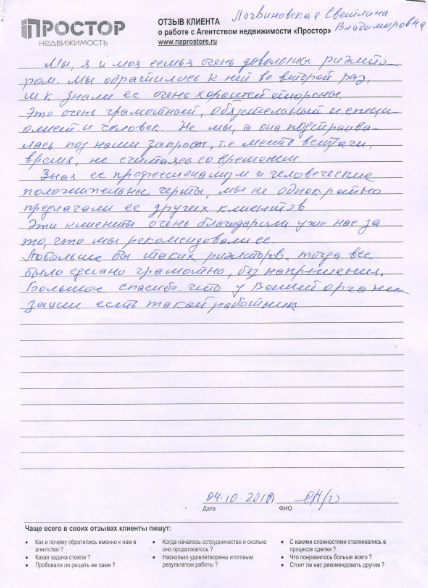 ПРОСТОР
НЕДВИЖИМОСТЬ
ОТЗЫВ КЛИЕНТА
о работе с Агентством недвижимости «Простор»
www.naprostore.ru
Логвиновская Светлана
Владимировна
Мы, я и моя семья очень довольны риэлто-
ром. Мы обратились к ней во второй раз,
т.к знали ее очень хорошей стороны.
Это очень грамотный, обязательный и специ-
алист и человек. Не мы, а она подстраива-
лась под наши запросы, т.е место встречи,
время, не считаясь со временем.
Зная ее профессионализм и человеческие
положительные черты, мы не однократно
предлагали ее других клиентов
Эти клиенты очень благодарили уже нас за
то, что мы рекомендовали ее.
Побольше бы таких риэлторов, тогда все
было сделано грамотно, без напряжения.
Большое спасибо что у Вашей органи
зации есть такой работник
04.10.
Дата
ФИО
Чаще всего в своих отзывах клиенты пишут:
• Как и почему обратились именно к нам в агентство ?
• Какая задача стояла ?
• Пробовали ли решать не сами ?
• Когда началось сотрудничество и сколько оно продолжалось ?
• Насколько удовлетворены итоговым результатом работы ?
• С какими сложностями сталкивались в процессе сделки ?
• Что понравилось больше всего ?
• Стоит ли нас рекомендовать другим ?